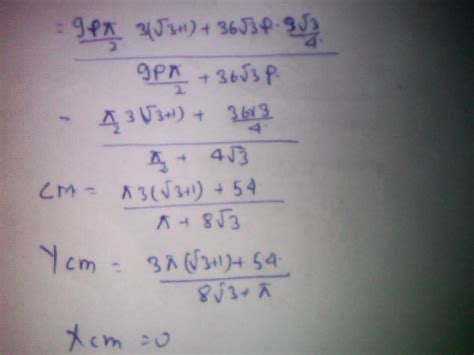 = 9ρπ/2 3(√3+1) + 36√3ρ · 9√3/4
9ρπ/2 + 36√3ρ
= π/2 3(√3+1) + 36√3/4
π/2 + 4√3
CM = π3(√3+1) + 54
π + 8√3
Ycm = 3π(√3+1) + 54
8√3 + π
Xcm = 0